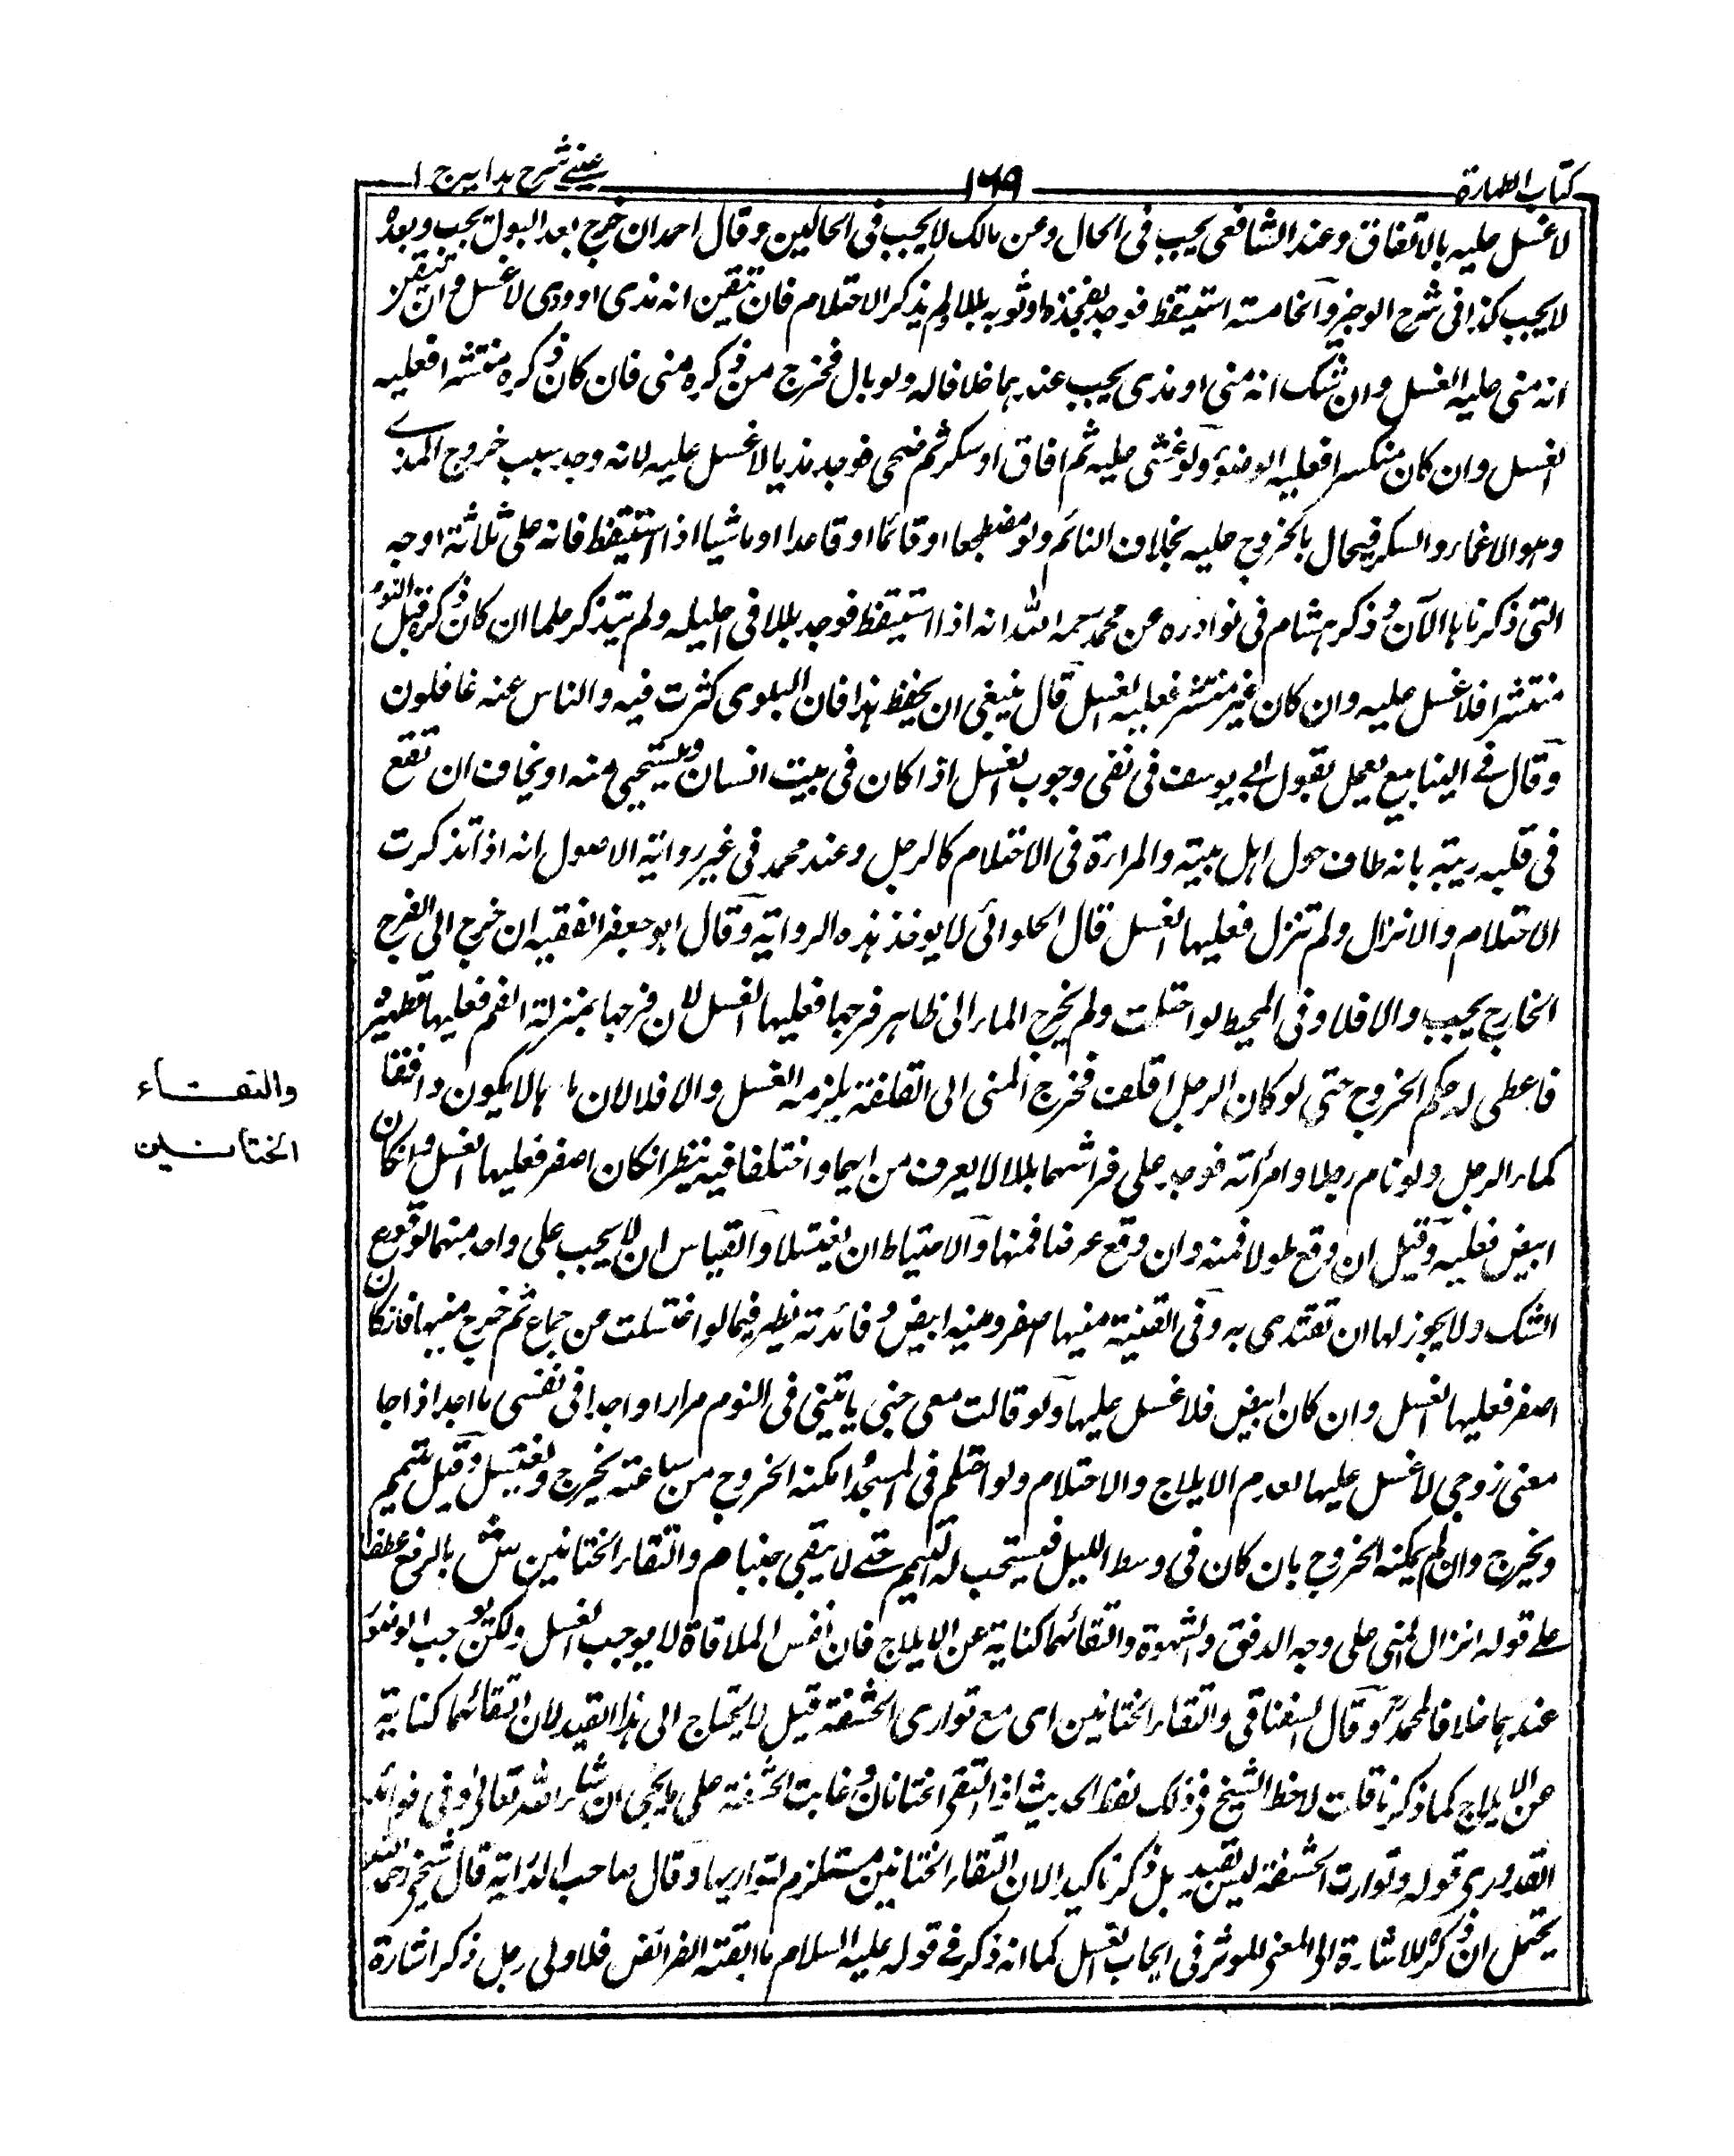 كتاب الطهارة
١٦٩
عيني شرح هدايه ج ١
لا غسل عليه بالاتفاق وعند الشافعي يجب في الحال وعن مالك لا يجب في الحالين وقال احمد ان خرج بعد البول يجب وبعده
لا يجب كذا في شرح الوجيز والخامسة استيقظ فوجد بفخذه او ثوبه بللا ولم يذكر الاحتلام فان تيقن انه مذي او ودي لا غسل وان تيقن
انه مني عليه الغسل وان شك انه مني او مذي يجب عندهما خلافا له ولو بال فخرج من ذكره مني فان كان ذكره منتشرا فعليه
الغسل وان كان منكسرا فعليه الوضوء ولو غشي عليه ثم افاق او سكر ثم صحى فوجد مذيا لا غسل عليه لانه وجد سبب خروج المذي
وهو الاغماء والسكر فيحال بالخروج عليه بخلاف النائم ولو مضطجعا او قائما او قاعدا او ماشيا اذا استيقظ فانه على ثلاثة اوجه
التي ذكرناها الآن وذكر هشام في نوادره عن محمد رحمه الله انه اذا استيقظ فوجد بللا في احليله ولم يتذكر حلما ان كان ذكره قبل النوم
منتشرا فلا غسل عليه وان كان غير منتشر فعليه الغسل قال ينبغي ان يحفظ هذا فان البلوى كثرت فيه والناس عنه غافلون
وقال في الينابيع يعمل بقول ابي يوسف في نفي وجوب الغسل اذا كان في بيت انسان ويستحيي منه او يخاف ان تقع
في قلبه ريبة بانه طاف حول اهل بيته والمراءة في الاحتلام كالرجل وعند محمد في غير رواية الاصول انه اذا تذكرت
الاحتلام والانزال ولم تنزل فعليها الغسل قال الحلوائي لا يوخذ بهذه الرواية وقال ابو جعفر الفقيه ان خرج الى الفرج
الخارج يجب والا فلا وفي المحيط لو احتلمت ولم يخرج الماء الى ظاهر فرجها فعليها الغسل لان فرجها بمنزلة الفم فعليها تطهيره
فاعطى له حكم الخروج حتى لو كان الرجل اقلف فخرج المني الى القلفة يلزمه الغسل والا فلا لان ماءها لا يكون دافقا
كماء الرجل ولو نام رجل وامرأته فوجد على فراشهما بللا لا يعرف من ايهما واختلفا فيه ينظر ان كان اصفر فعليها الغسل وان كان
ابيض فعليه وقيل ان وقع طولا فمنه وان وقع عرضا فمنها والاحتياط ان يغتسلا والقياس ان لا يجب على واحد منهما لوقوع
الشك ولا يجوز لها ان تقتدي به وفي القنية منيها اصفر ومنيه ابيض وفائدته تظهر فيما لو اغتسلت من جماع ثم خرج منيها فان كان
اصفر فعليها الغسل وان كان ابيض فلا غسل عليها ولو قالت معي جني ياتيني في النوم مرارا واجد في نفسي ما اجد اذا جا
معني زوجي لا غسل عليها لعدم الايلاج والاحتلام ولو احتلم في المسجد امكنه الخروج من ساعته يخرج ويغتسل وقيل يتيمم
ويخرج وان لم يمكنه الخروج بان كان في وسط الليل فيستحب له التيمم حتى لا يبقى جنبا م والتقاء الختانين ش بالرفع عطفا
على قوله انزال المني على وجه الدفق والشهوة والتقائهما كناية عن الايلاج فان نفس الملاقاة لا يوجب الغسل ولكن يوجب الوضوء
عندهما خلافا لمحمد وقال السغناقي والتقاء الختانين اي مع تواري الحشفة قيل لا يحتاج الى هذا القيد لان التقائهما كناية
عن الايلاج كما ذكرنا قلت لاحظ الشيخ في ذلك لفظ الحديث اذا التقى الختانان وغابت الحشفة على ما يجئ ان شاء الله تعالى وفي فوائد
القدوري قوله وتوارت الحشفة ليس بقيد بل ذكر تاكيدا لان التقاء الختانين مستلزم لتواريها وقال صاحب الدراية قال شيخي رحمه الله
يحتمل ان ذكره للاشارة الى المعنى الموثر في ايجاب الغسل كما انه ذكر في قوله عليه السلام ما ابقته الفرائض فلاولى رجل ذكر اشارة
والتقاء
الختانين